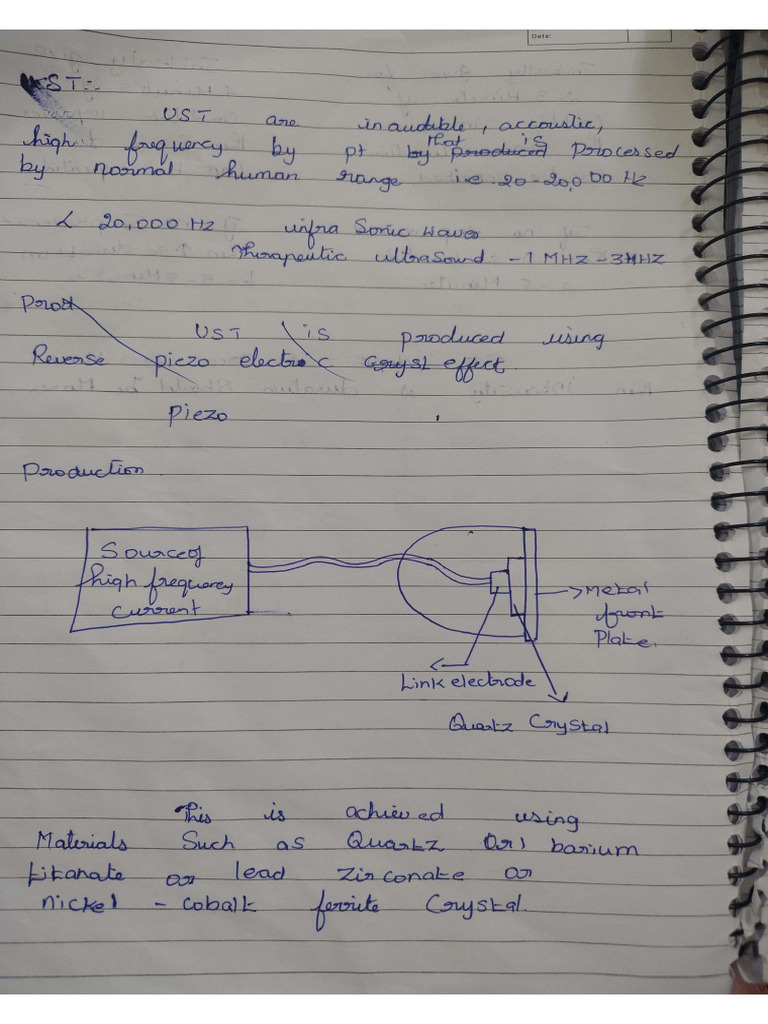 Date:
UST:-
UST are inaudible, accoustic,
high frequency by pt by that produced is processed
by normal human range i.e 20-20,000 Hz
< 20,000 Hz infra Sonic waves
Therapeutic ultrasound - 1 MHZ - 3MHZ
Prod
UST is produced using
Reverse piezo electric Cryst effect.
piezo
Production
Source of
high frequency
current
Metal
front
Plate.
Link electrode
Quartz Crystal
This is achieved using
Materials Such as Quartz or barium
titanate or lead zirconate or
nickel - cobalt ferrite Crystal.